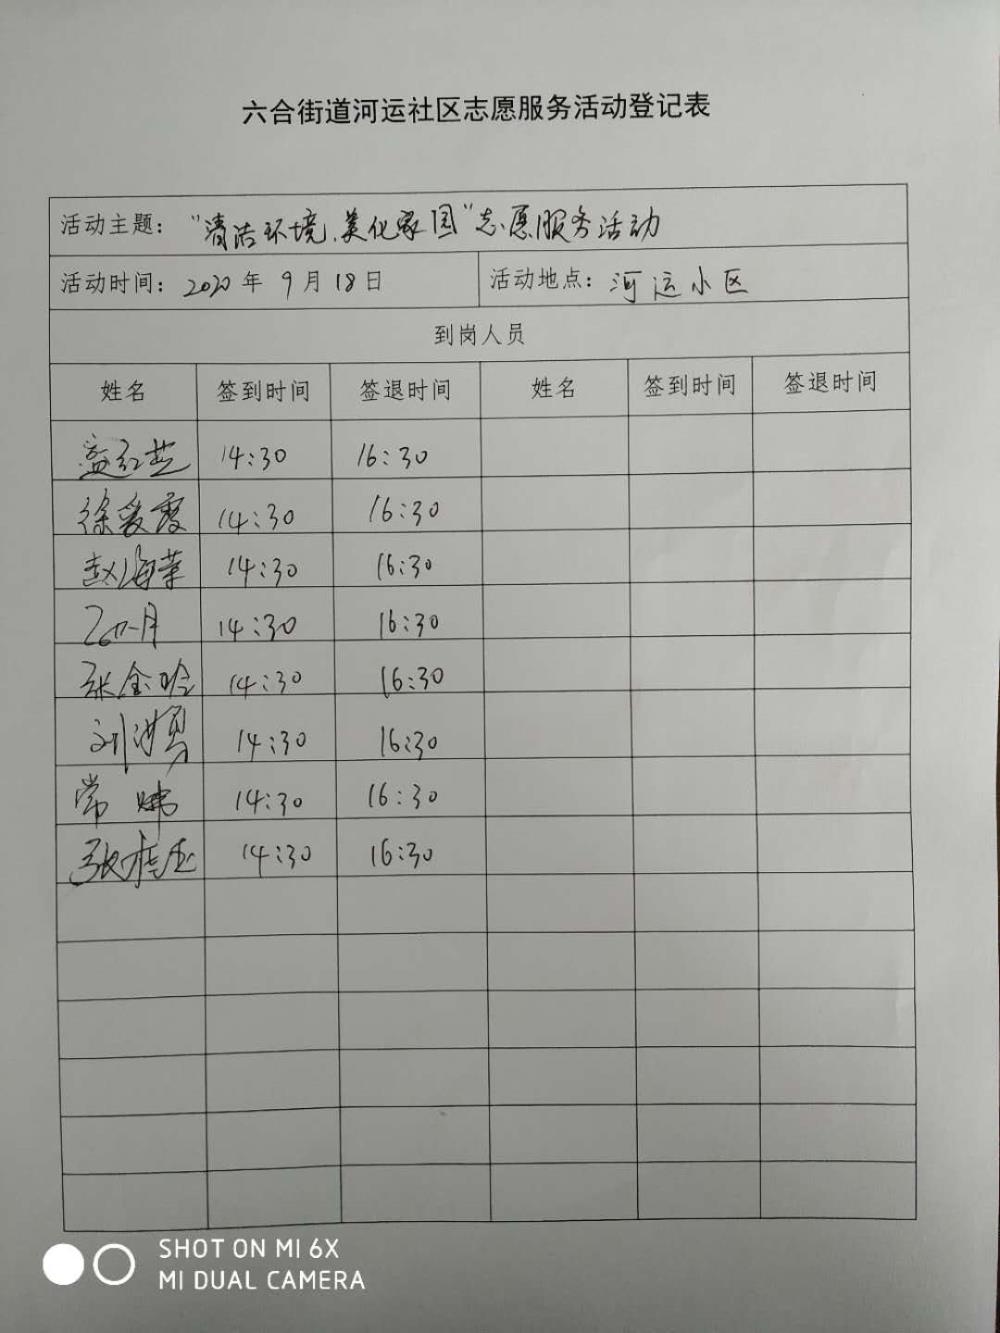 六合街道河运社区志愿服务活动登记表
活动主题：“清洁环境、美化家园”志愿服务活动
活动时间：2020年9月18日 活动地点：河运小区
到岗人员
姓名 签到时间 签退时间 姓名 签到时间 签退时间
14:30 16:30
徐爱霞 14:30 16:30
赵海荣 14:30 16:30
14:30 16:30
张金 14:30 16:30
刘洪勇 14:30 16:30
常 14:30 16:30
张桂 14:30 16:30
SHOT ON MI 6X
MI DUAL CAMERA